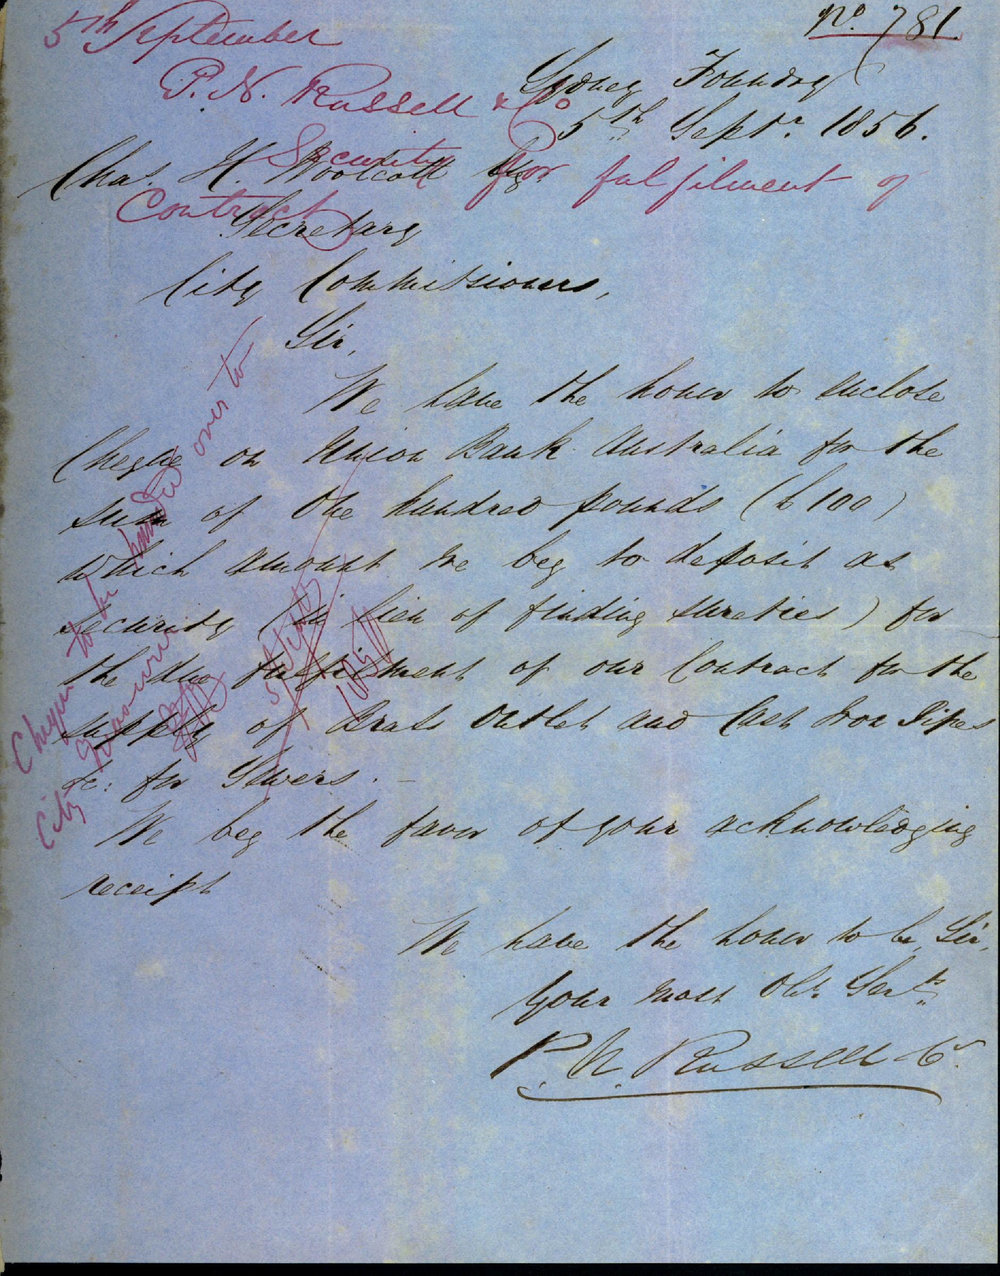 No. 781.
5th September
P. N. Russell & Co
Security for fulfilment of
Contract
Sydney Foundry
5th Septr. 1856.
Chas. H. Woolcott Esq.
Secretary
City Commissioners,
Sir,
We have the honor to enclose
Cheque on Union Bank Australia for the
sum of One hundred pounds (£100)
which amount we beg to deposit as
security (in lieu of finding sureties) for
the due fulfilment of our Contract for the
supply of Brass Outlet and Cast Iron Pipes
&c: for Sewers. —
We beg the favor of your acknowledging
receipt
We have the honor to be, Sir,
Your most Obt. Servts.
P. N. Russell & Co
Cheque to be handed over to
City Treasurer
5 Sept